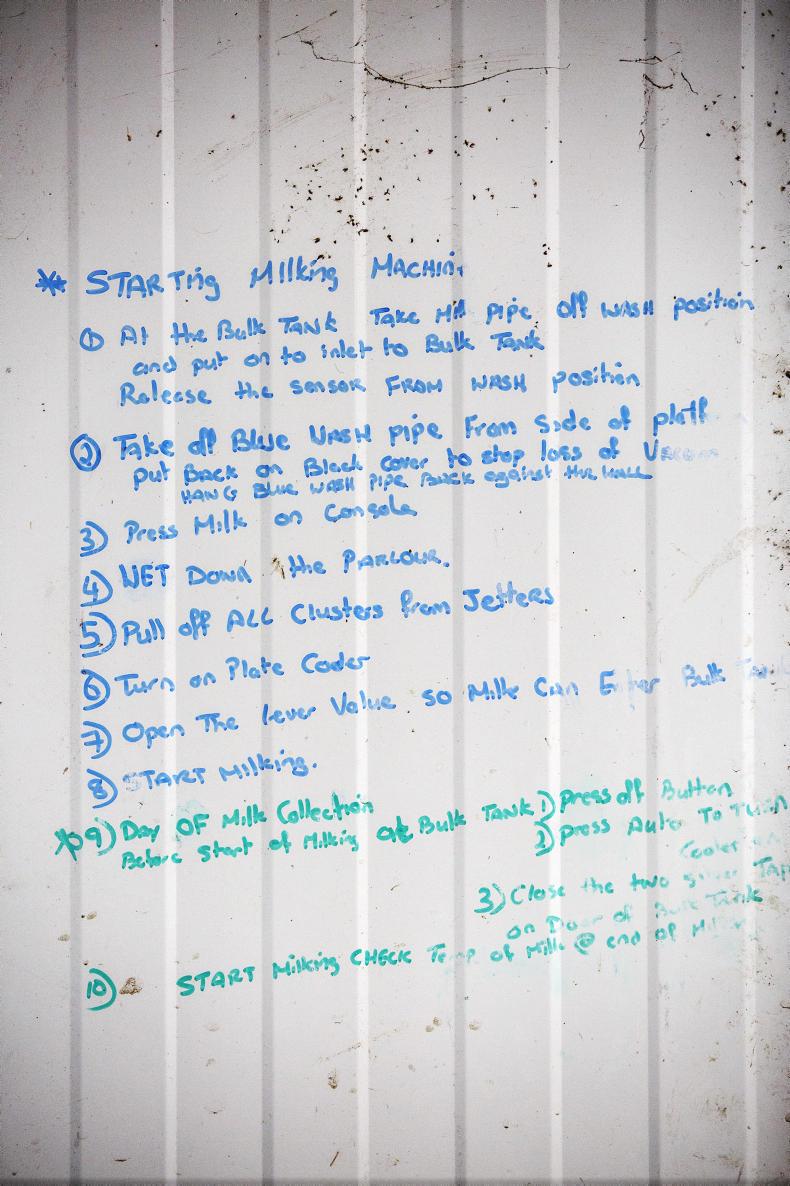 * STARTing Milking MACHin
① At the Bulk TANK Take Milk pipe off WASH position
and put on to inlet to Bulk Tank
Release the sensor FROM WASH position
② Take off Blue WASH pipe From side of platf
put BACK on Black cover to stop loss of Vacuum
HANG BLUE WASH PIPE BACK against THE WALL
3) Press Milk on Console
4) WET DOWN the PARLOUR.
5) Pull off ALL Clusters from Jetters
6) Turn on Plate Cooler
7) Open The lever Value so Milk Can Enter Bulk Tank
8) START Milking.
* 9) Day OF Milk Collection
Before Start of Milking at Bulk TANK 1) press off Button
2) press Auto To Turn
Cooler on
3) Close the two silver Taps
on Door of Bulk Tank
10) START Milking CHECK Temp of Milk @ end of